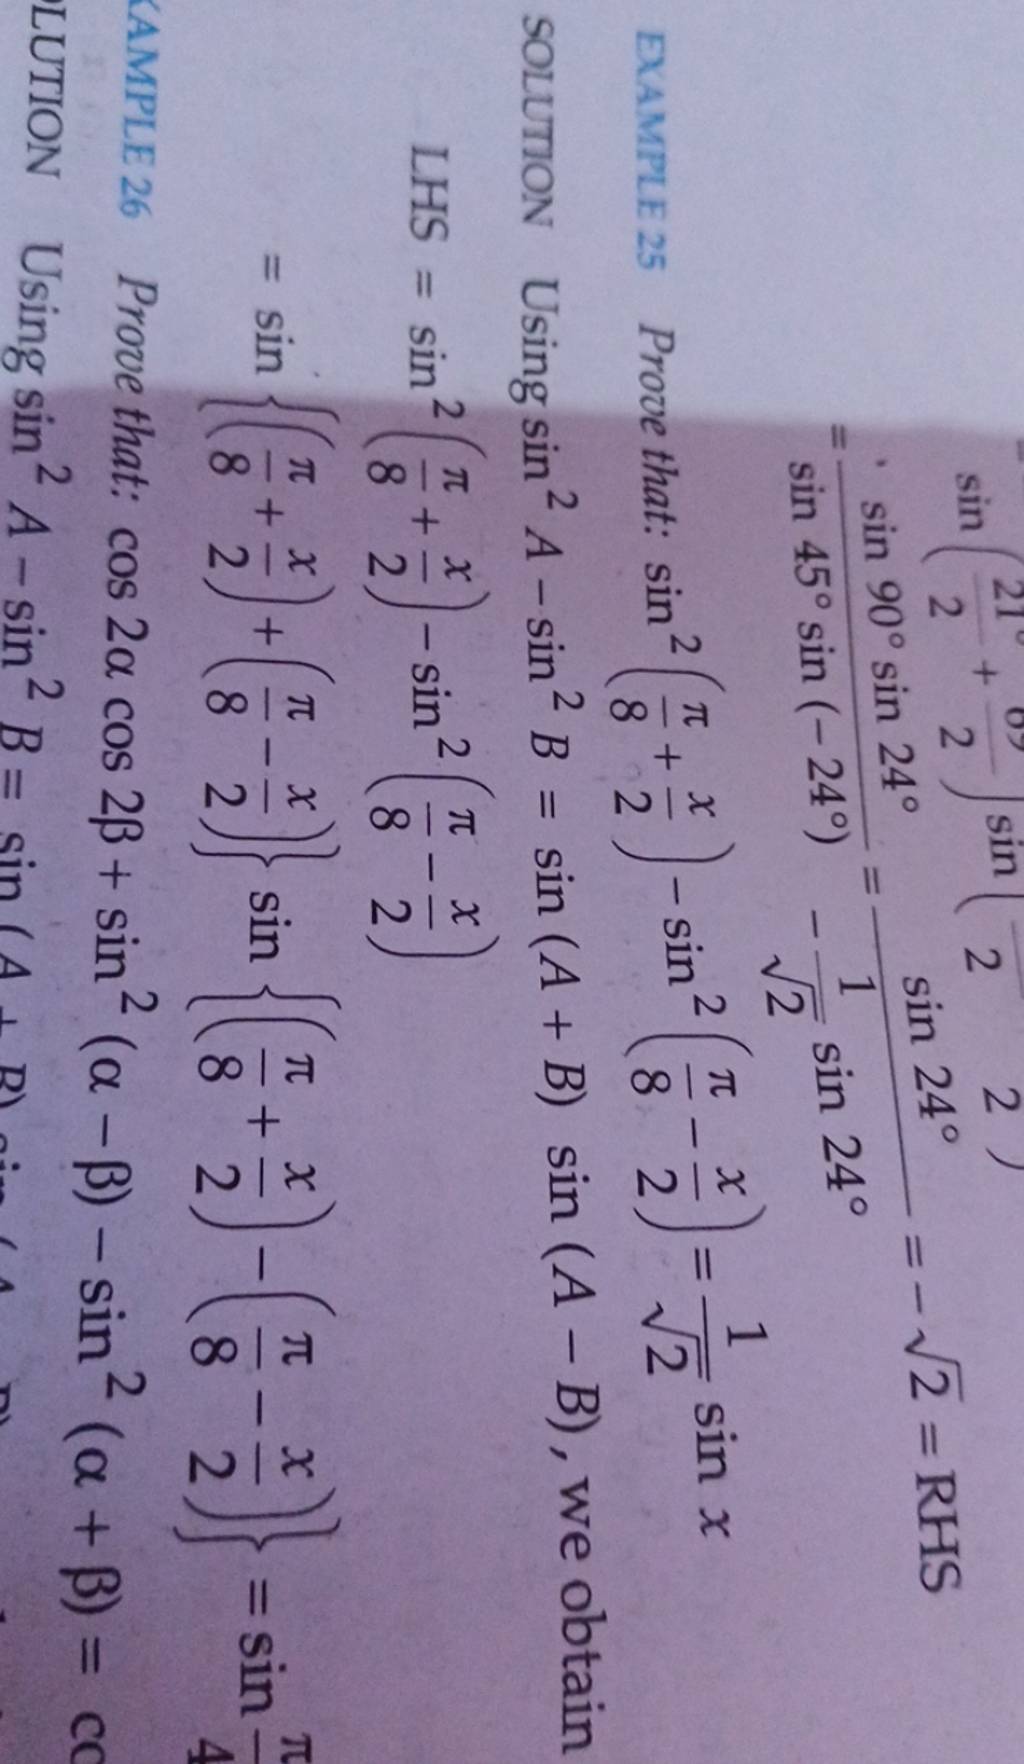 sin (21°/2 + 69/2) sin ( /2 2)
= sin 90° sin 24° / sin 45° sin (– 24°) = sin 24° / – 1/√2 sin 24° = – √2 = RHS
EXAMPLE 25 Prove that: sin² (π/8 + x/2) – sin² (π/8 – x/2) = 1/√2 sin x
SOLUTION Using sin² A – sin² B = sin (A + B) sin (A – B), we obtain
LHS = sin² (π/8 + x/2) – sin² (π/8 – x/2)
= sin {(π/8 + x/2) + (π/8 – x/2)} sin {(π/8 + x/2) – (π/8 – x/2)} = sin π/4
XAMPLE 26 Prove that: cos 2α cos 2β + sin² (α – β) – sin² (α + β) = co
OLUTION Using sin² A – sin² B = sin (A + B) sin (A